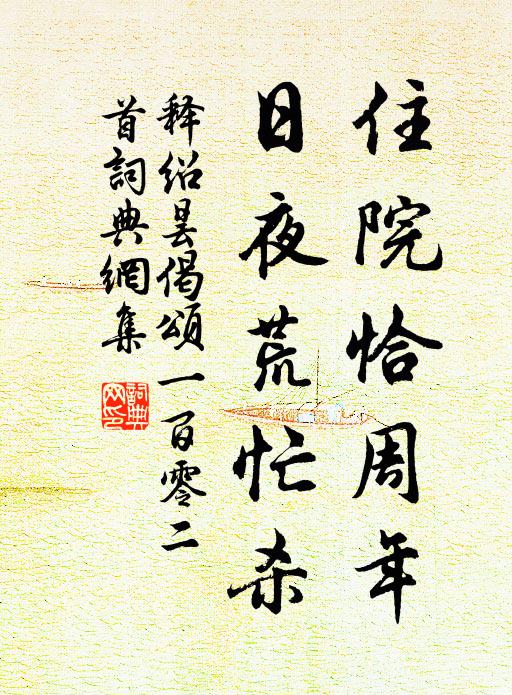 住院恰周年
日夜荒忙杀
释绍昙偈颂一百零二
首詞典網集
詞典
网印